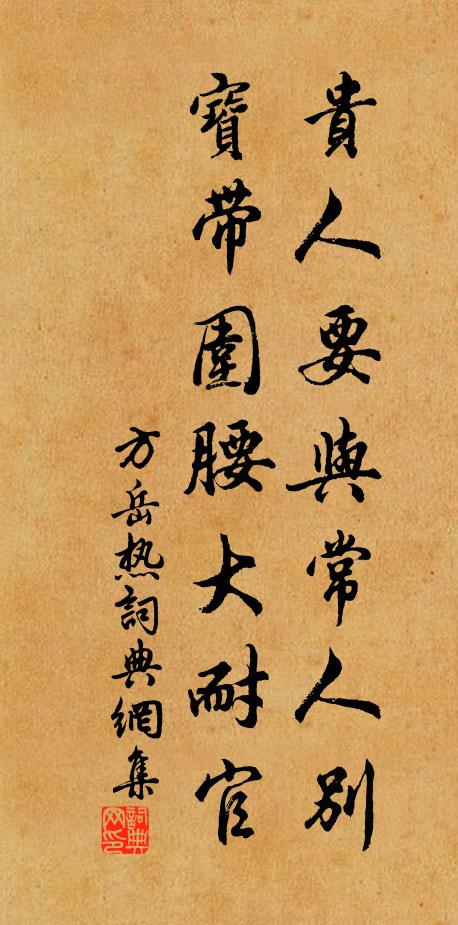 貴人要與常人別
寶帶圍腰大耐官
方岳热詞典網集
詞典网印